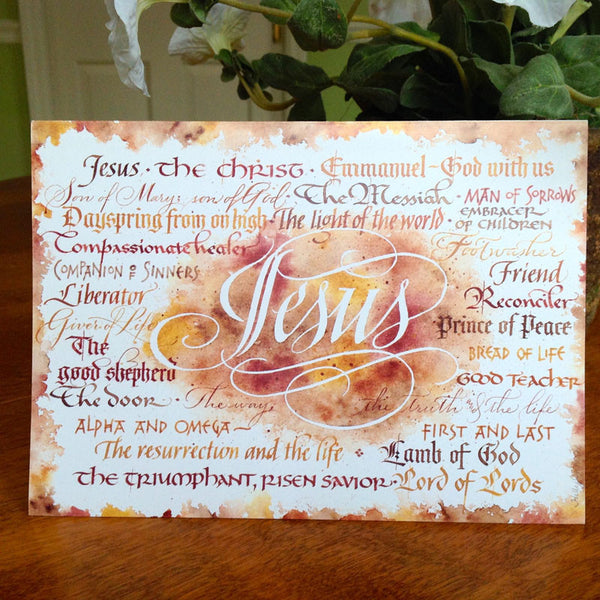 Jesus · the Christ · Emmanuel - God with us
Son of Mary; son of God · The Messiah · Man of Sorrows
Dayspring from on high · The light of the world · embracer of children
Compassionate healer
Footwasher
Companion of Sinners
Friend
Liberator
Reconciler
Giver of Life
Jesus
Prince of Peace
The good shepherd
Bread of Life
Good Teacher
The door · The way, the truth & the life
Alpha and Omega
First and Last
The resurrection and the life
Lamb of God
The triumphant, risen Savior · Lord of Lords